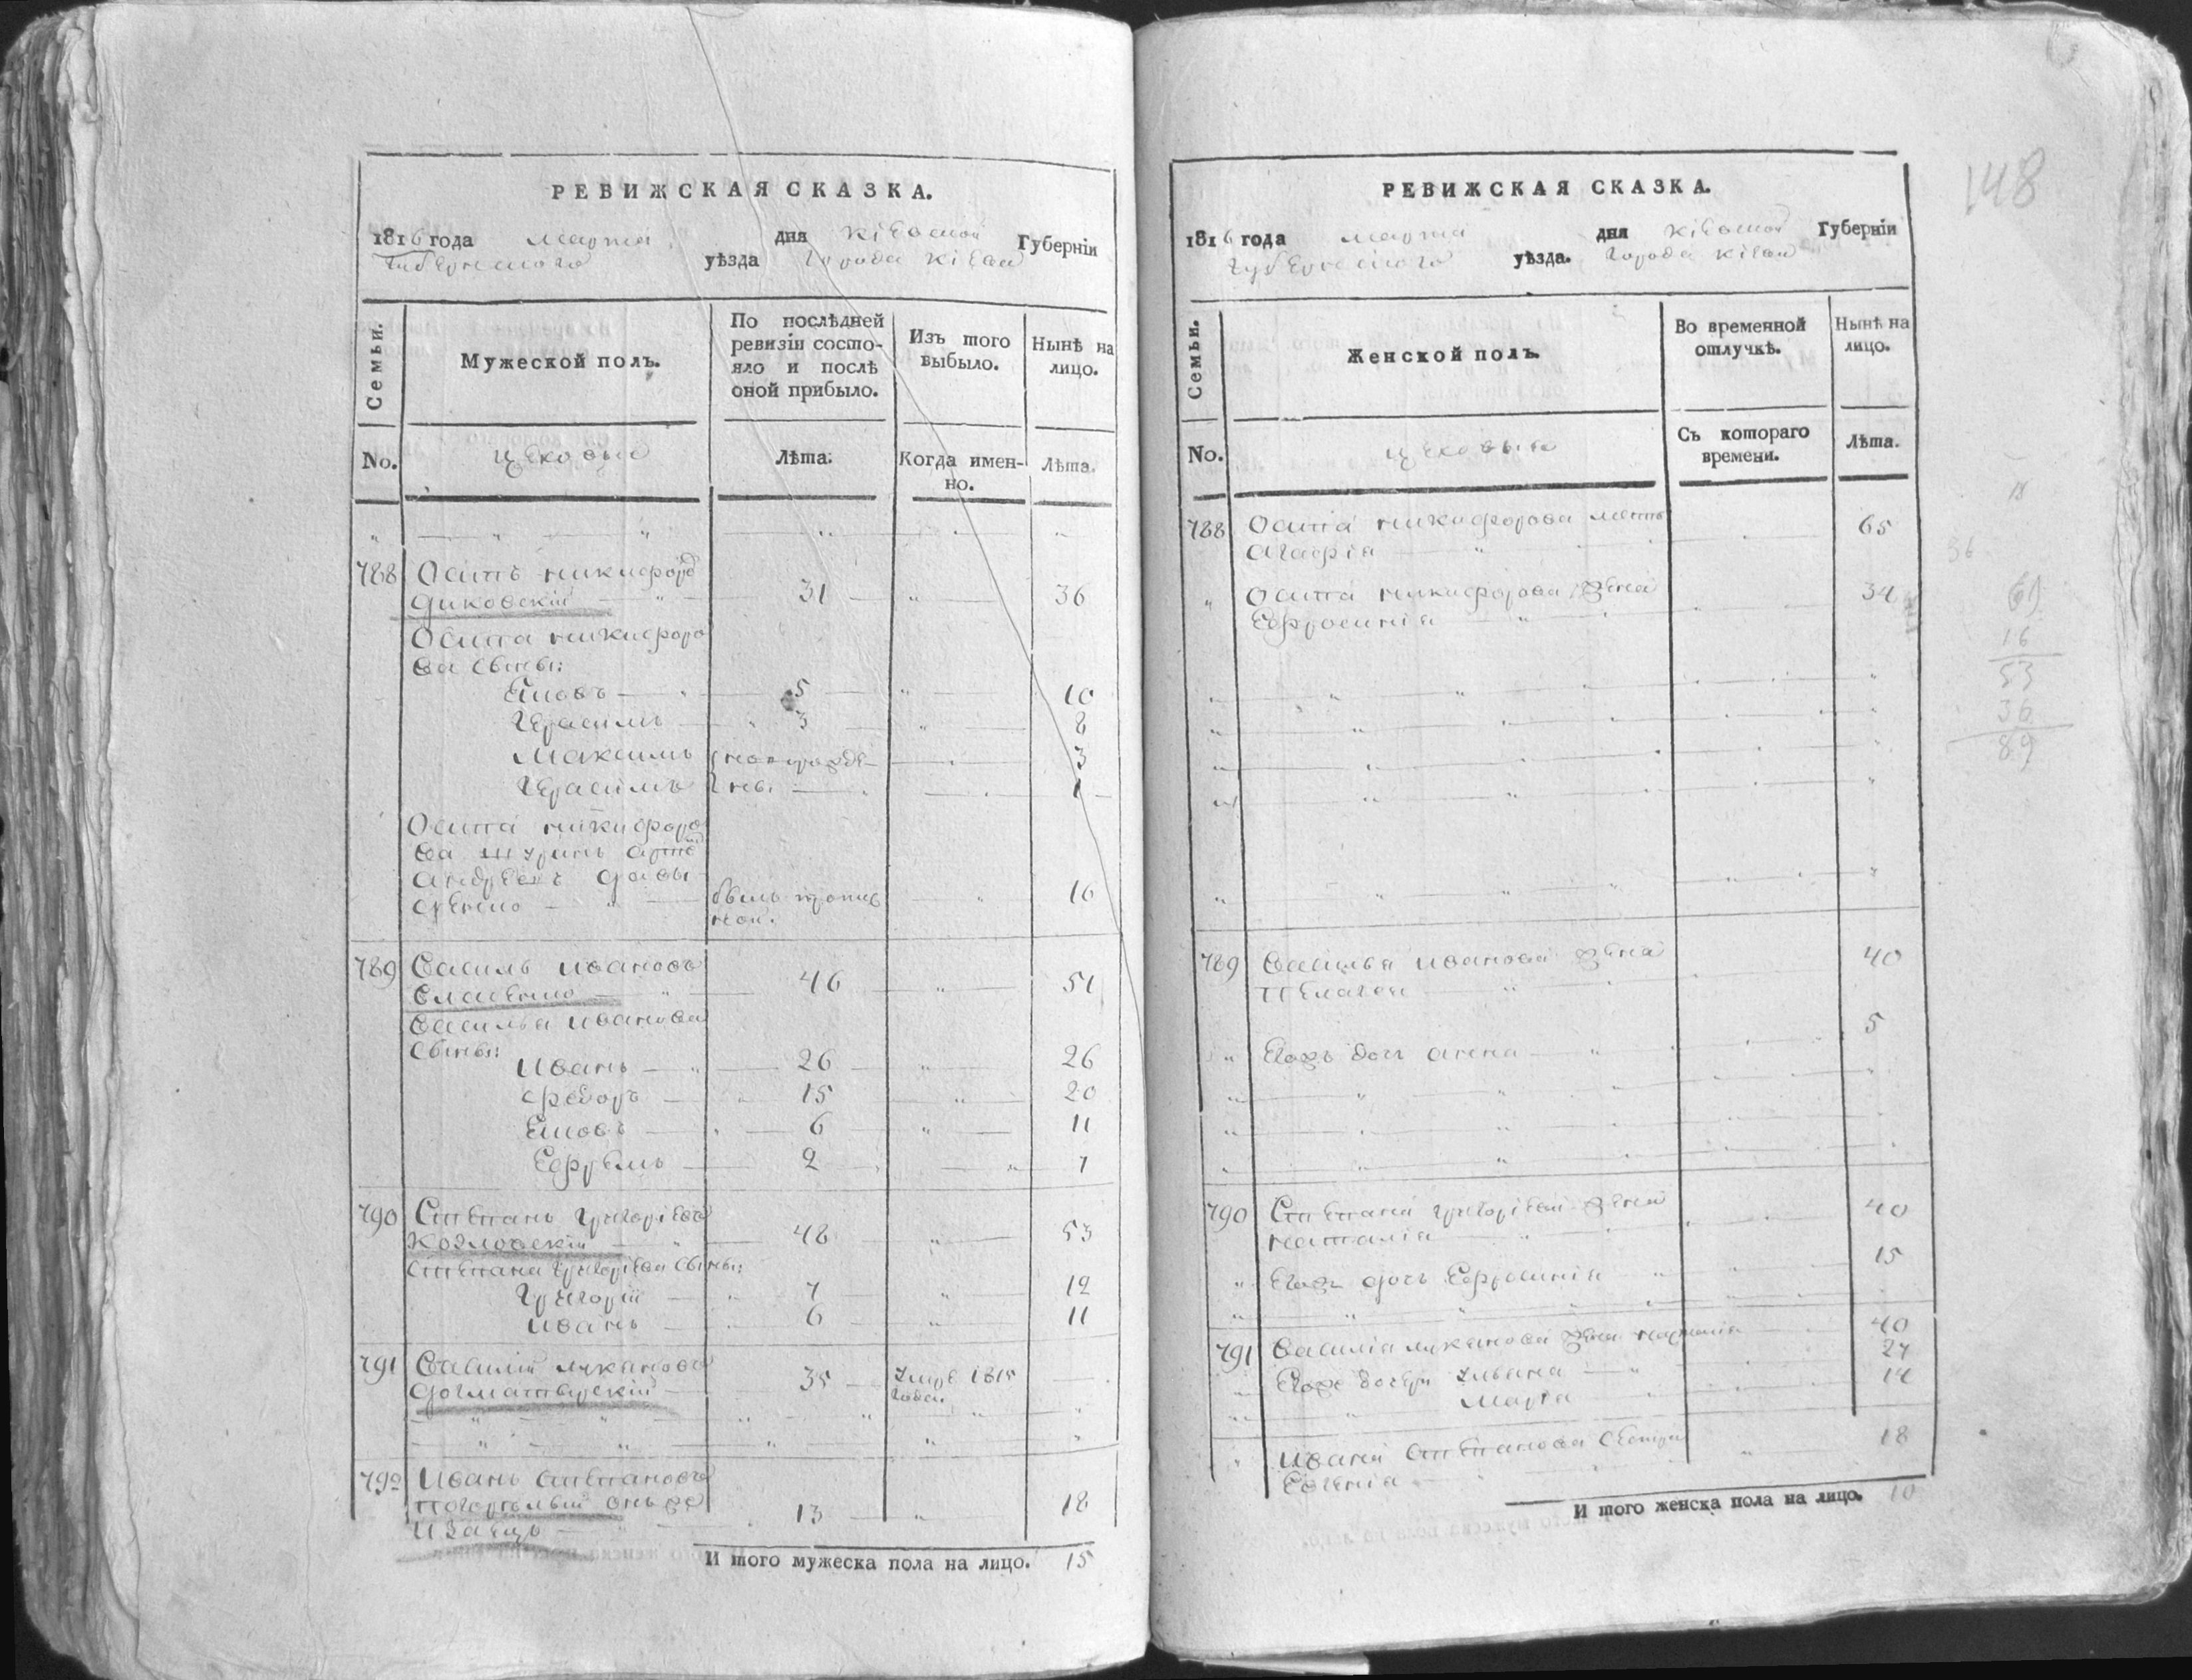 РЕВИЖСКАЯ СКАЗКА.
1816 года марта дня Кіевской Губерніи
Губернского уѣзда Города Кіева
Семьи.
Мужеской полъ.
По послѣдней
ревизіи состо-
яло и послѣ
оной прибыло.
Изъ того
выбыло.
Нынѣ на
лицо.
No.
цеховые
Лѣта.
Когда имен-
но.
Лѣта.
788 Осипъ никифоровъ
диковскій 31 36
Осипа никифоро
ва сыны:
5 10
Герасимъ 3 8
Максимъ новорожде 3
Герасимъ ны. 1
Осипа никифоро
ва шуринъ
андреевъ давы
денко былъ пропис 16
ной.
789 Василь ивановъ
46 51
Василья иванова
сыны:
Иванъ 26 26
Федоръ 15 20
6 11
Ефремъ 2 7
790 Степанъ григоріевъ
Козловскій 48 53
Степана григоріева сыны:
Григорій 7 12
Иванъ 6 11
791 Василій лукяновъ
35 умре 1815
года
792 Иванъ степановъ
онъ же
Изаецъ 13 18
И того мужеска пола на лицо. 15
РЕВИЖСКАЯ СКАЗКА.
148
1816 года марта дня Кіевской Губерніи
Губернского уѣзда. Города Кіева
Семьи.
Женской полъ.
Во временной
отлучкѣ.
Нынѣ на
лицо.
No.
цеховые
Съ котораго
времени.
Лѣта.
788 Осипа никифорова мать
агафія 65
Осипа никифорова жена 34
Ефросинія
36
16
53
36
89
789 Василья иванова жена 40
Пелагея
Егожъ доч анна 5
790 Степана григоріева жена 40
наталія
Егожъ дочь Ефросинія 15
791 Василія лукянова жена 40
Егоже дочери уляна 27
Марѳа 14
Ивана степанова сестра 18
Евгенія
И того женска пола на лицо. 10